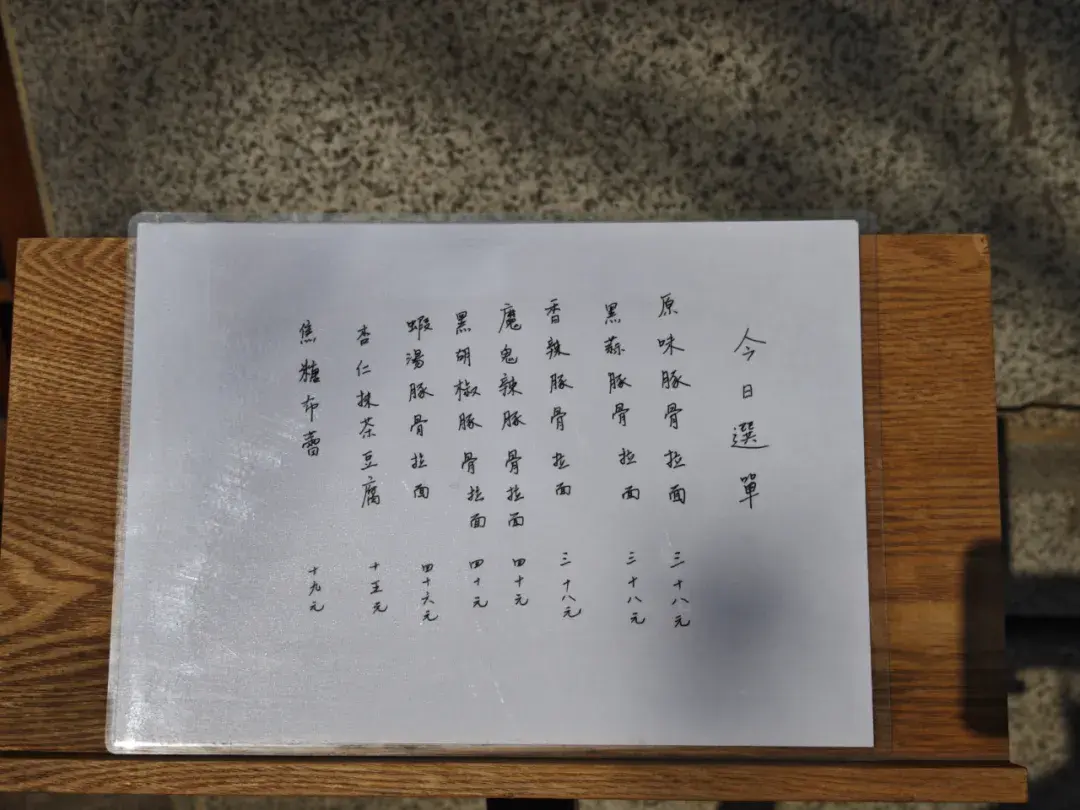 今日選單
原味豚骨拉面 三十八元
黑蒜豚骨拉面 三十八元
香辣豚骨拉面 三十八元
魔鬼辣豚骨拉面 四十元
黑胡椒豚骨拉面 四十元
蝦湯豚骨拉面 四十六元
杏仁抹茶豆腐 十五元
焦糖布蕾 十九元